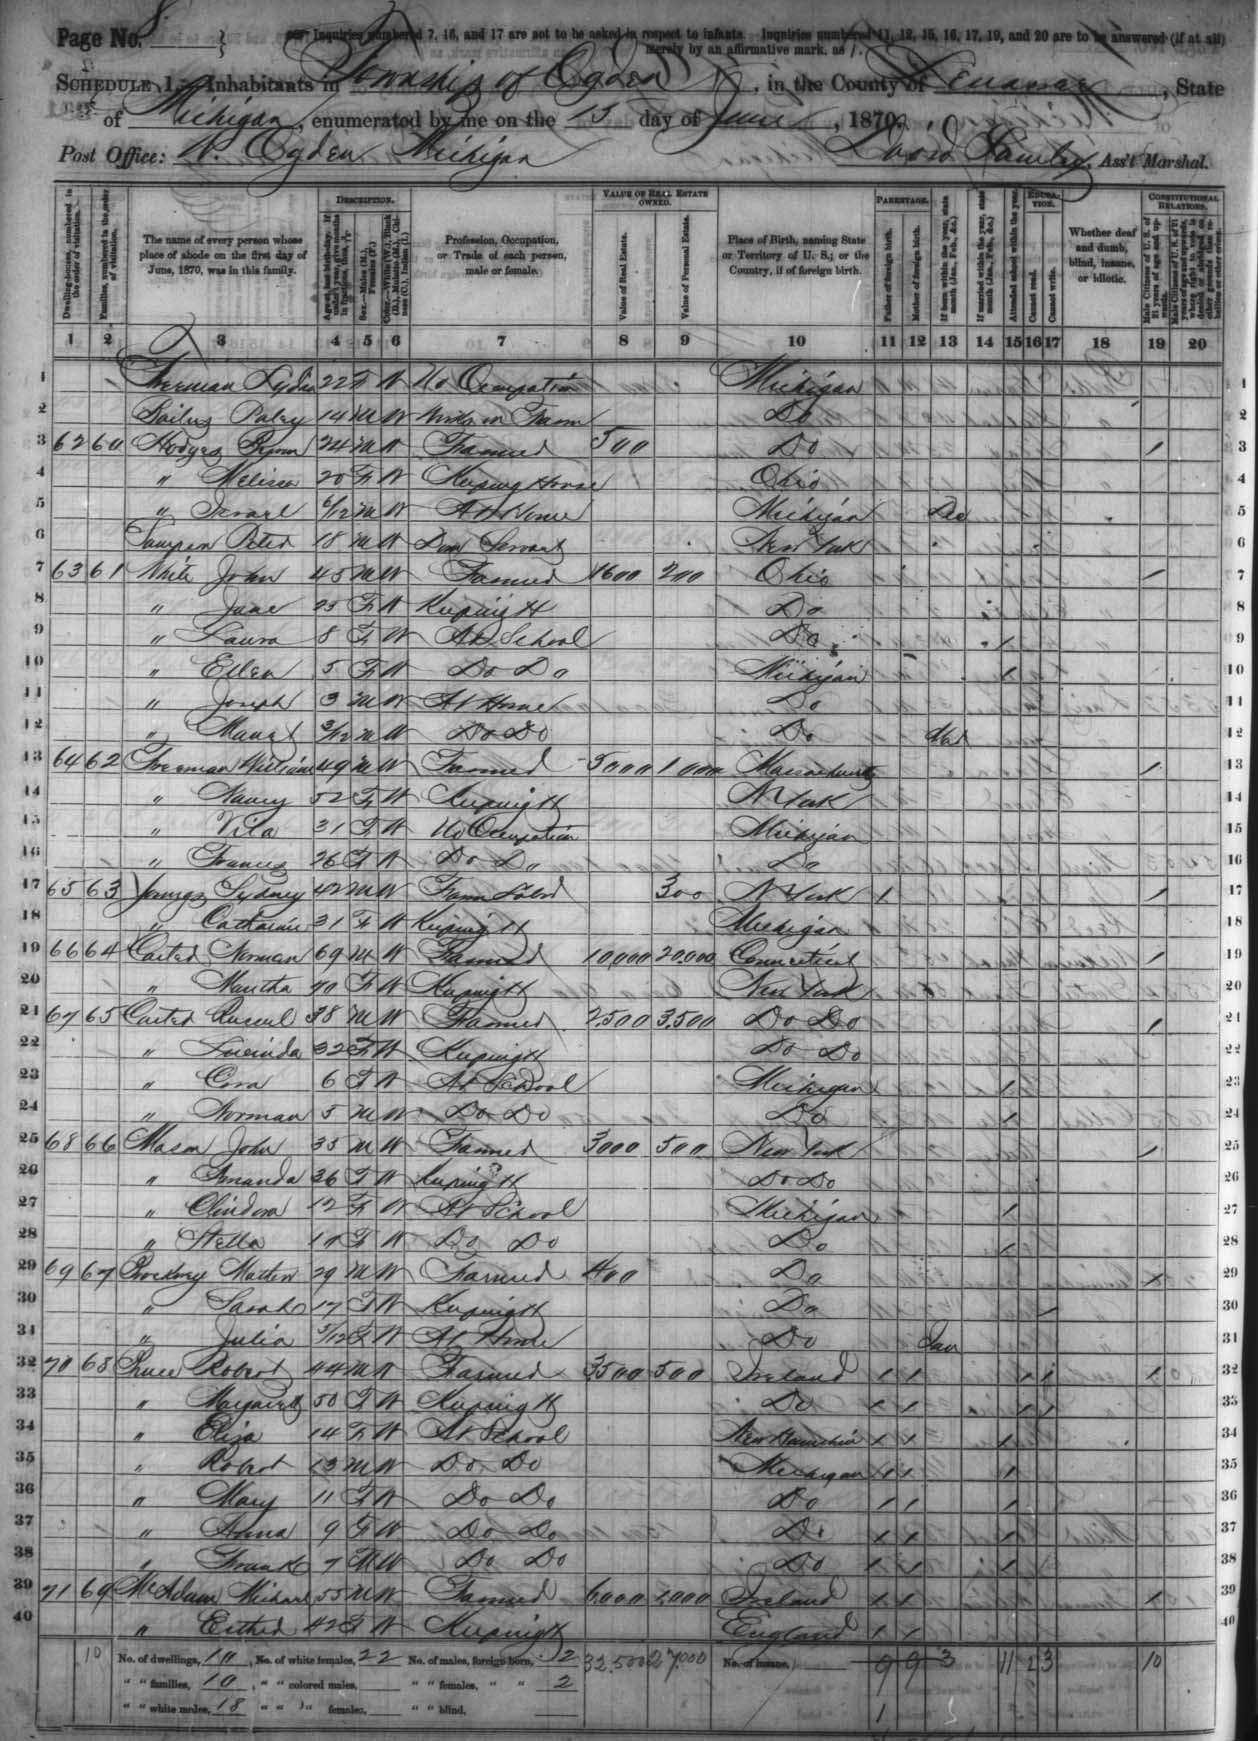 Page No. 8.
Inquiries numbered 7, 16, and 17 are not to be asked in respect to infants. Inquiries numbered 11, 12, 15, 16, 17, 19, and 20 are to be answered (if at all)
merely by an affirmative mark, as /.
Schedule 1.—Inhabitants in Township of Ogden, in the County of Lenawee, State
of Michigan, enumerated by me on the 15 day of June, 1870.
Post Office: N. Ogden Michigan Ass't Marshal.
Description. Value of Real Estate Owned. Parentage. Education. Constitutional Relations.
Dwelling-houses, numbered in the order of visitation.
Families, numbered in the order of visitation.
The name of every person whose place of abode on the first day of June, 1870, was in this family.
Profession, Occupation, or Trade of each person, male or female.
Value of Real Estate.
Value of Personal Estate.
Place of Birth, naming State or Territory of U. S.; or the Country, if of foreign birth.
Father of foreign birth.
Mother of foreign birth.
If born within the year, state month (Jan., Feb., &c.)
If married within the year, state month (Jan., Feb., &c.)
Attended school within the year.
Cannot read.
Cannot write.
Whether deaf and dumb, blind, insane, or idiotic.
1 2 3 4 5 6 7 8 9 10 11 12 13 14 15 16 17 18 19 20
1 Freeman Lydia 22 F W No Occupation Michigan 1
2 14 M W Works on Farm Do 2
3 62 60 Hodges 24 M W Farmer 500 Do / 3
4 " Melissa 20 F W Keeping House Ohio 4
5 " Israel 6/12 M W At Home Michigan Dec 5
6 Peter 18 M W Dom Servant New York 6
7 63 61 White John 45 M W Farmer 1600 200 Ohio / 7
8 " Jane 25 F W Keeping H Do 8
9 " Laura 8 F W At School Do / 9
10 " Ellen 5 F W Do Do Michigan / 10
11 " Joseph 3 M W At Home Do 11
12 " 3/12 M W Do Do Do Mar 12
13 64 62 Freeman William 49 M W Farmer 5000 1000 Massachusetts / 13
14 " Nancy 52 F W Keeping H N York 14
15 " Vila 31 F W No Occupation Michigan 15
16 " Frances 26 F W Do Do Do 16
17 65 63 Sydney 42 M W Farm Labor 300 N York / / 17
18 " Catharine 31 F W Keeping H Michigan 18
19 66 64 Carter Norman 69 M W Farmer 10,000 20,000 Connecticut / 19
20 " Martha 70 F W Keeping H New York 20
21 67 65 Carter Russel 38 M W Farmer 2,500 3,500 Do Do / 21
22 " Lucinda 32 F W Keeping H Do Do 22
23 " Cora 6 F W At School Michigan / 23
24 " Norman 5 M W Do Do Do / 24
25 68 66 Mason John 35 M W Farmer 3000 500 New York / 25
26 " Amanda 36 F W Keeping H Do Do 26
27 " Clindora 12 F W At School Michigan / 27
28 " Stella 10 F W Do Do Do / 28
29 69 67 29 M W Farmer 400 Do / 29
30 " Sarah 17 F W Keeping H Do / 30
31 " Julia 5/12 F W At Home Do Jan 31
32 70 68 Robert 44 M W Farmer 3500 500 Ireland / / / / / 32
33 " Margaret 50 F W Keeping H Do / / / / 33
34 " Eliza 14 F W At School New Hampshire / / / 34
35 " Robert 13 M W Do Do Michigan / / / 35
36 " Mary 11 F W Do Do Do / / / 36
37 " Anna 9 F W Do Do Do / / / 37
38 " Frank 7 M W Do Do Do / / / 38
39 71 69 McAdam Michael 55 M W Farmer 6,000 1,000 Ireland / / / 39
40 " Esther 42 F W Keeping H England / / 40
10 No. of dwellings, 10, No. of white females, 22 No. of males, foreign born, 2 32,500 27,000 No. of insane, 9 9 3 11 2 3 10
" " families, 10, " " colored males, " " females, " " 2
" " white males, 18 " " " females, " " blind, 1